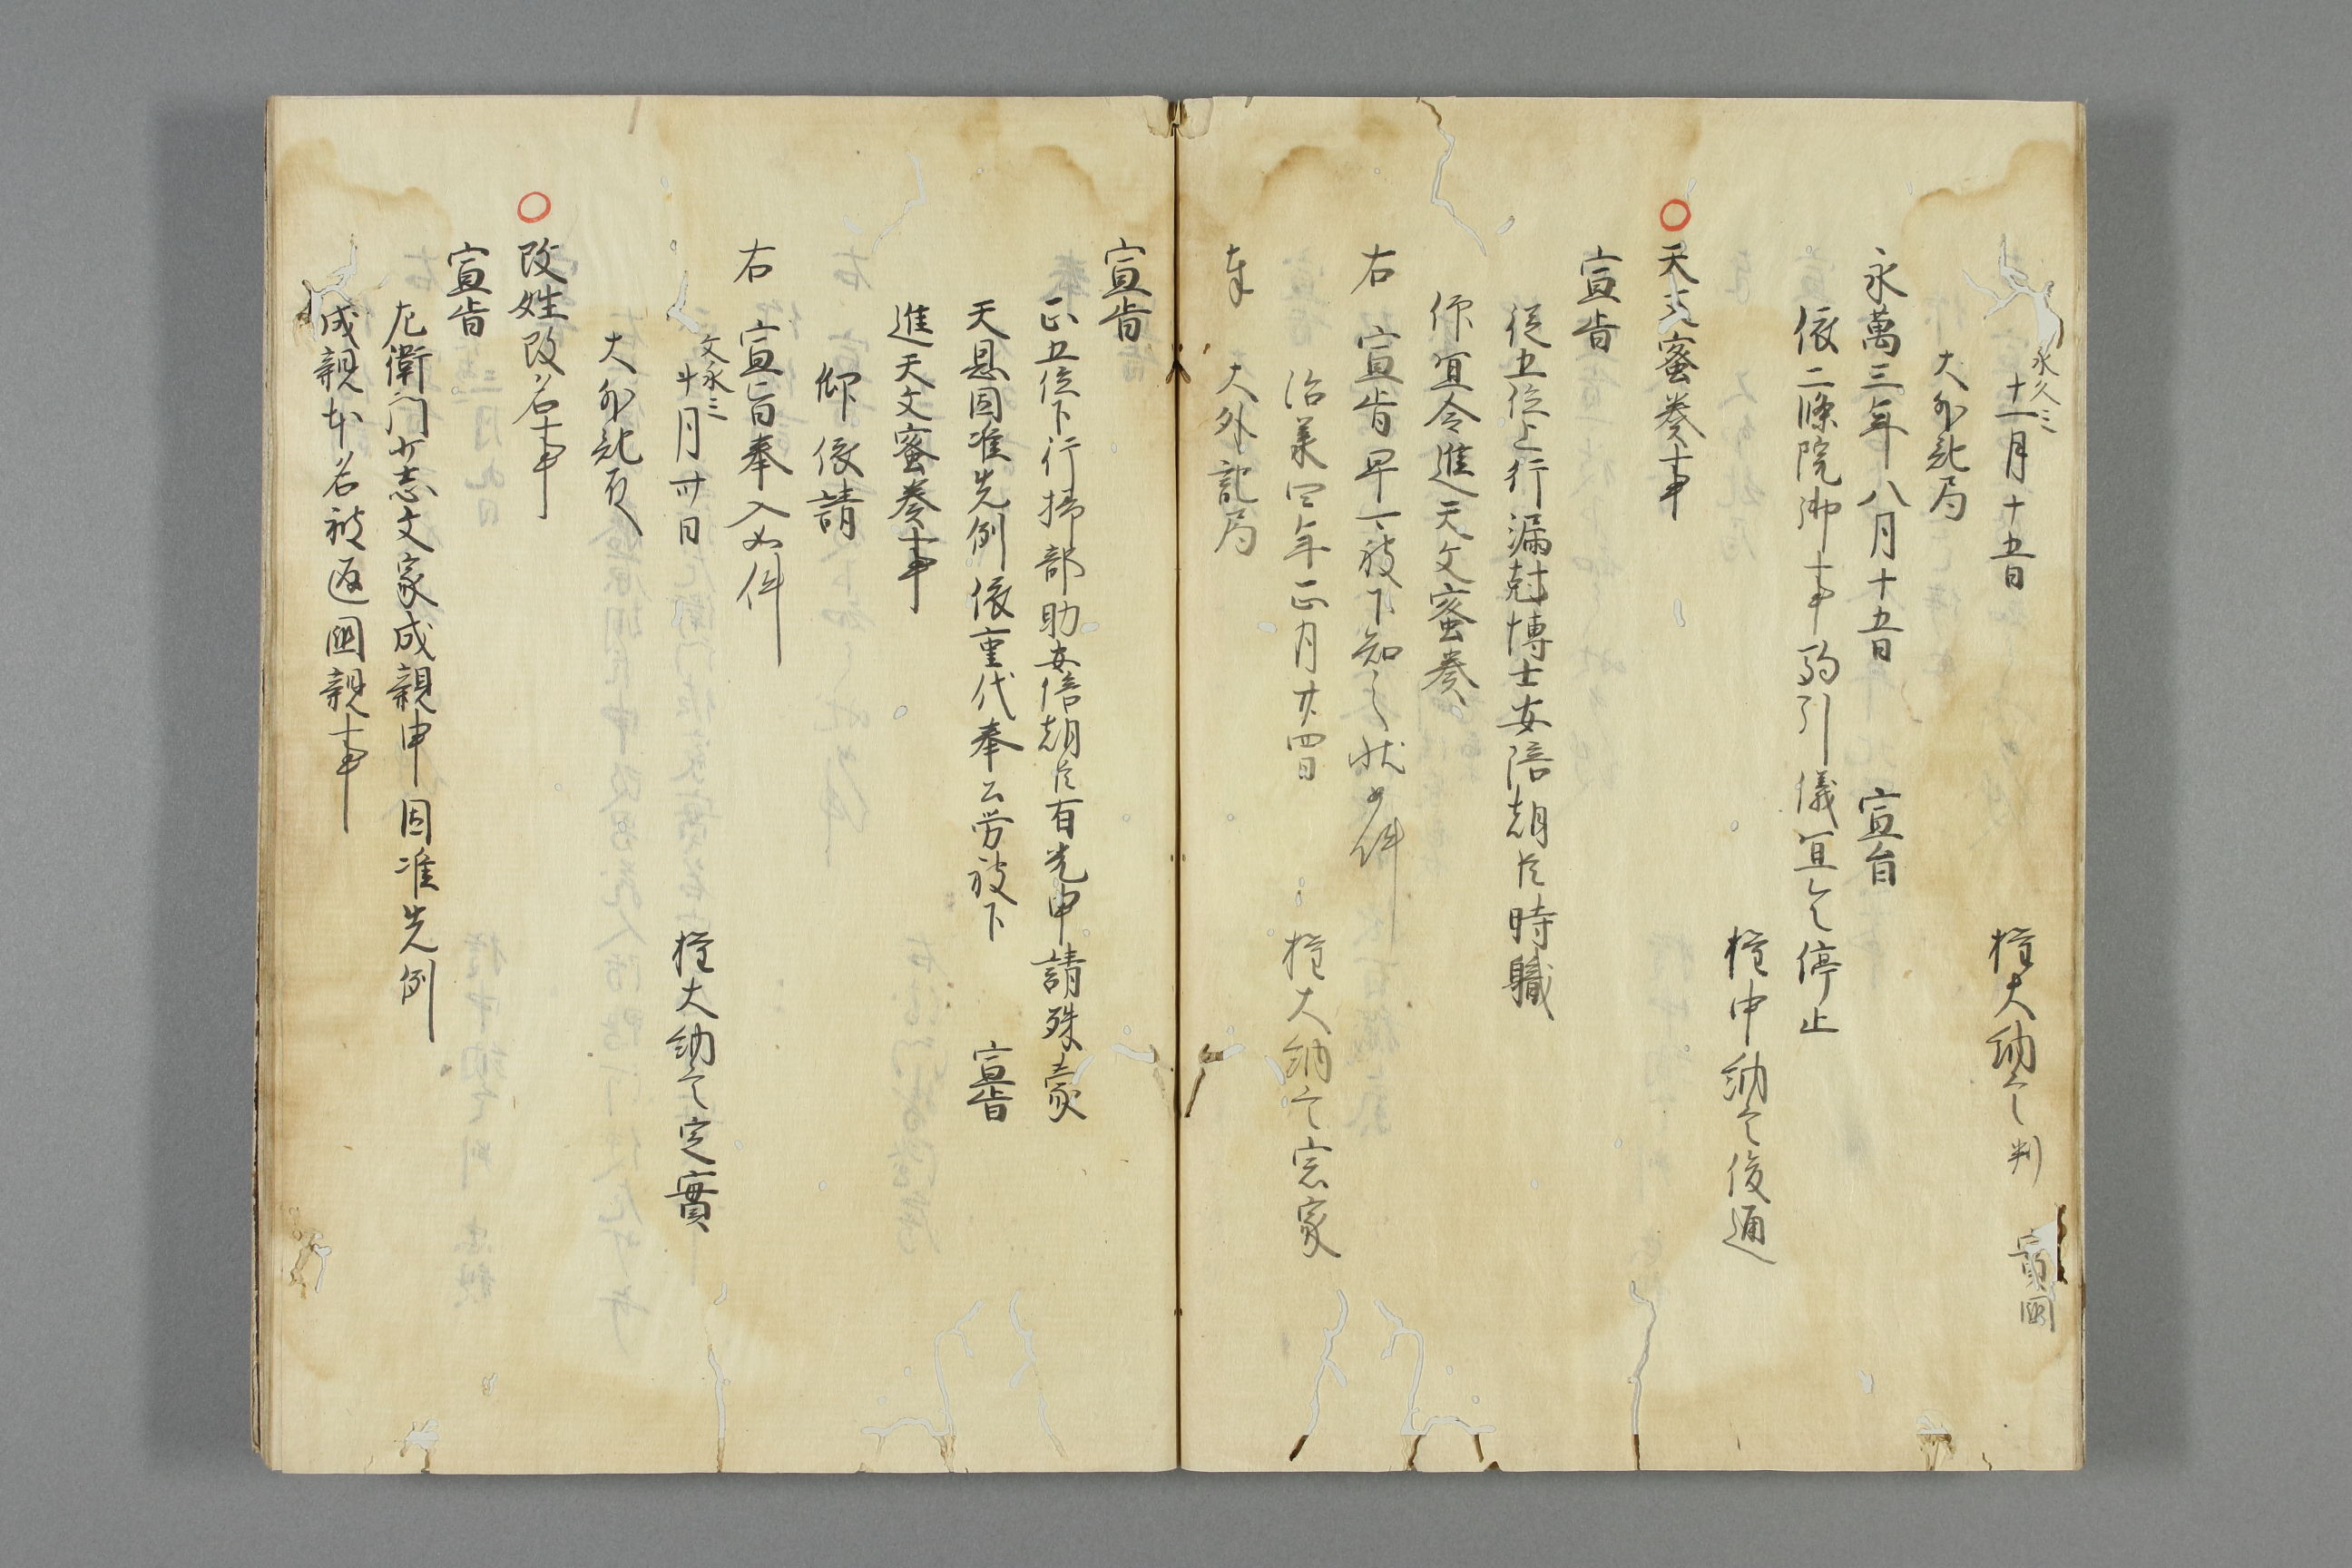 永久三
十一月十五日 権大納言判
大外記局
永萬三年八月十五日 宣旨
依二條院御事駒引儀宜令停止
権中納言俊通
○天文蜜奏事
宣旨
従五位上行漏尅博士安陪朝臣時職
仰宜令進天文蜜奏
右 宣旨早可被下知之状如件
治承四年正月廿四日 権大納言宗家
奉 大外記局
宣旨
正五位下行掃部助安倍朝臣有光申請殊蒙
天恩因准先例依重代奉公労被下 宣旨
進天文蜜奏事
仰依請
右 宣旨奉入如件
文永三
十月卅日 権大納言定實
大外記殿
○改姓改名事
宣旨
左衛門少志文家成親申因准先例
成親本名被返國親事